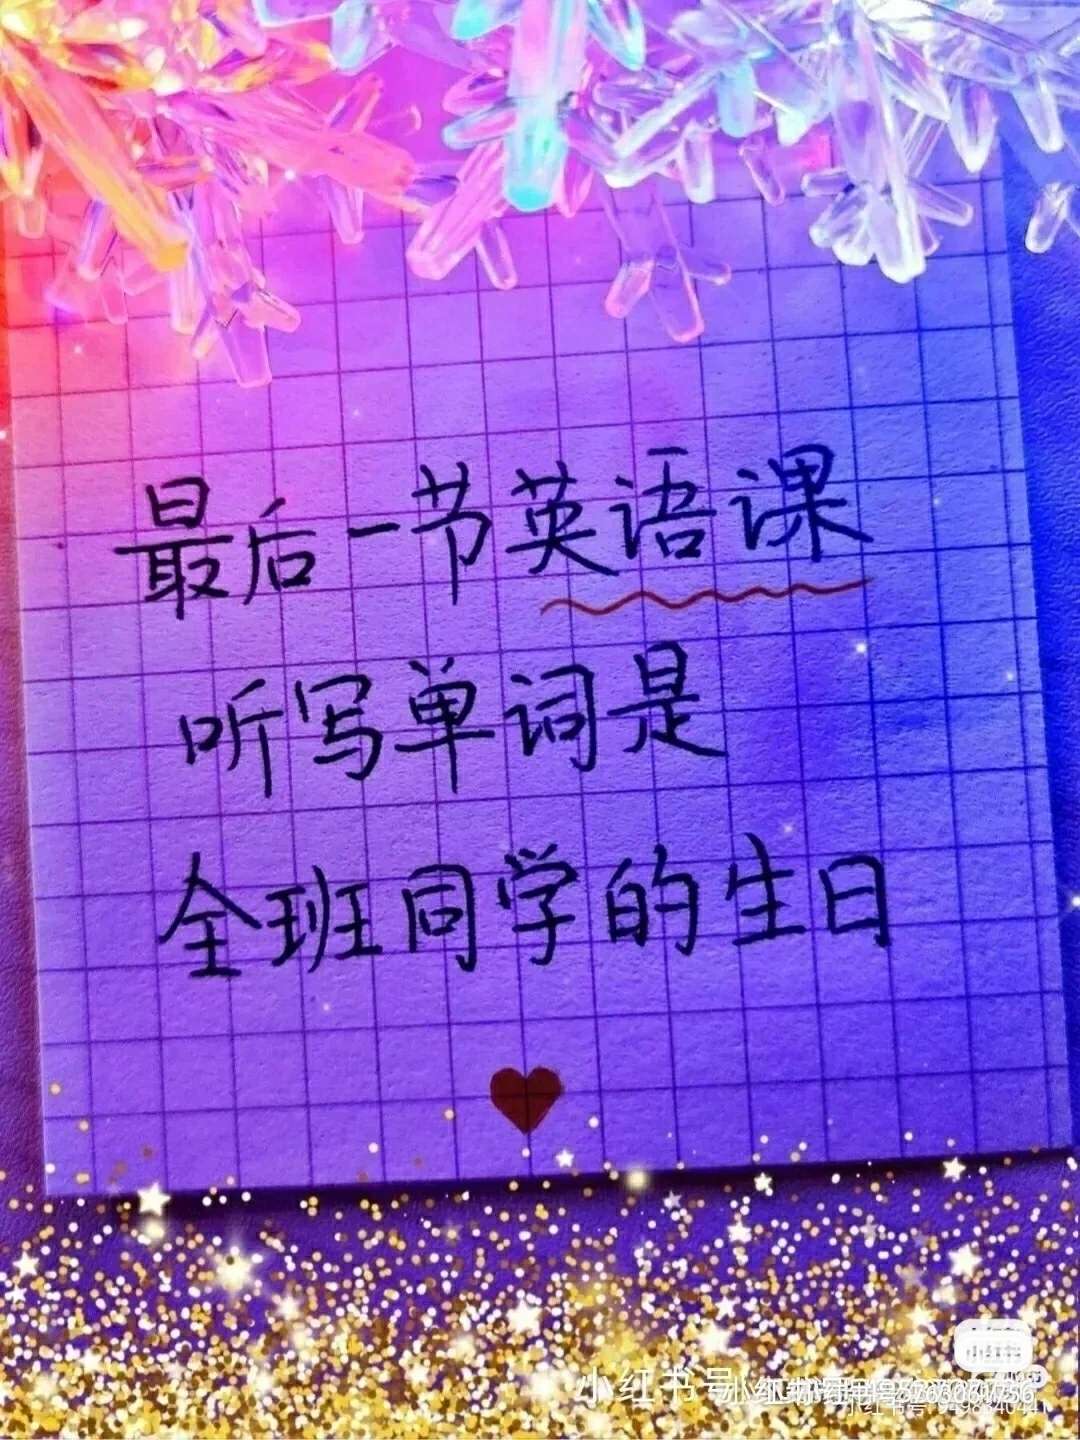 最后一节英语课
听写单词是
全班同学的生日
小红书
小红书号